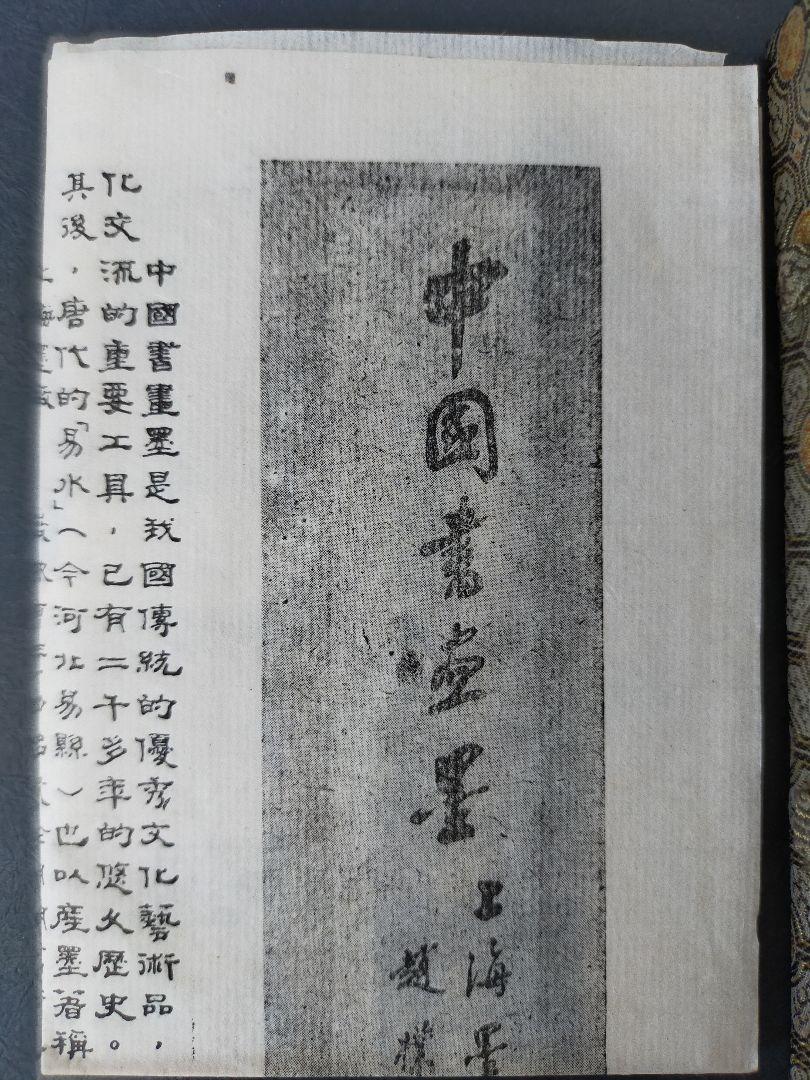 中国書畫墨
上海墨
趙樸
中國書畫墨是我國傳統的優秀文化藝術品，
化交流的重要工具，已有二千多年的悠久歷史。
其後，唐代的「易水」（今河北易縣）也以産墨著稱